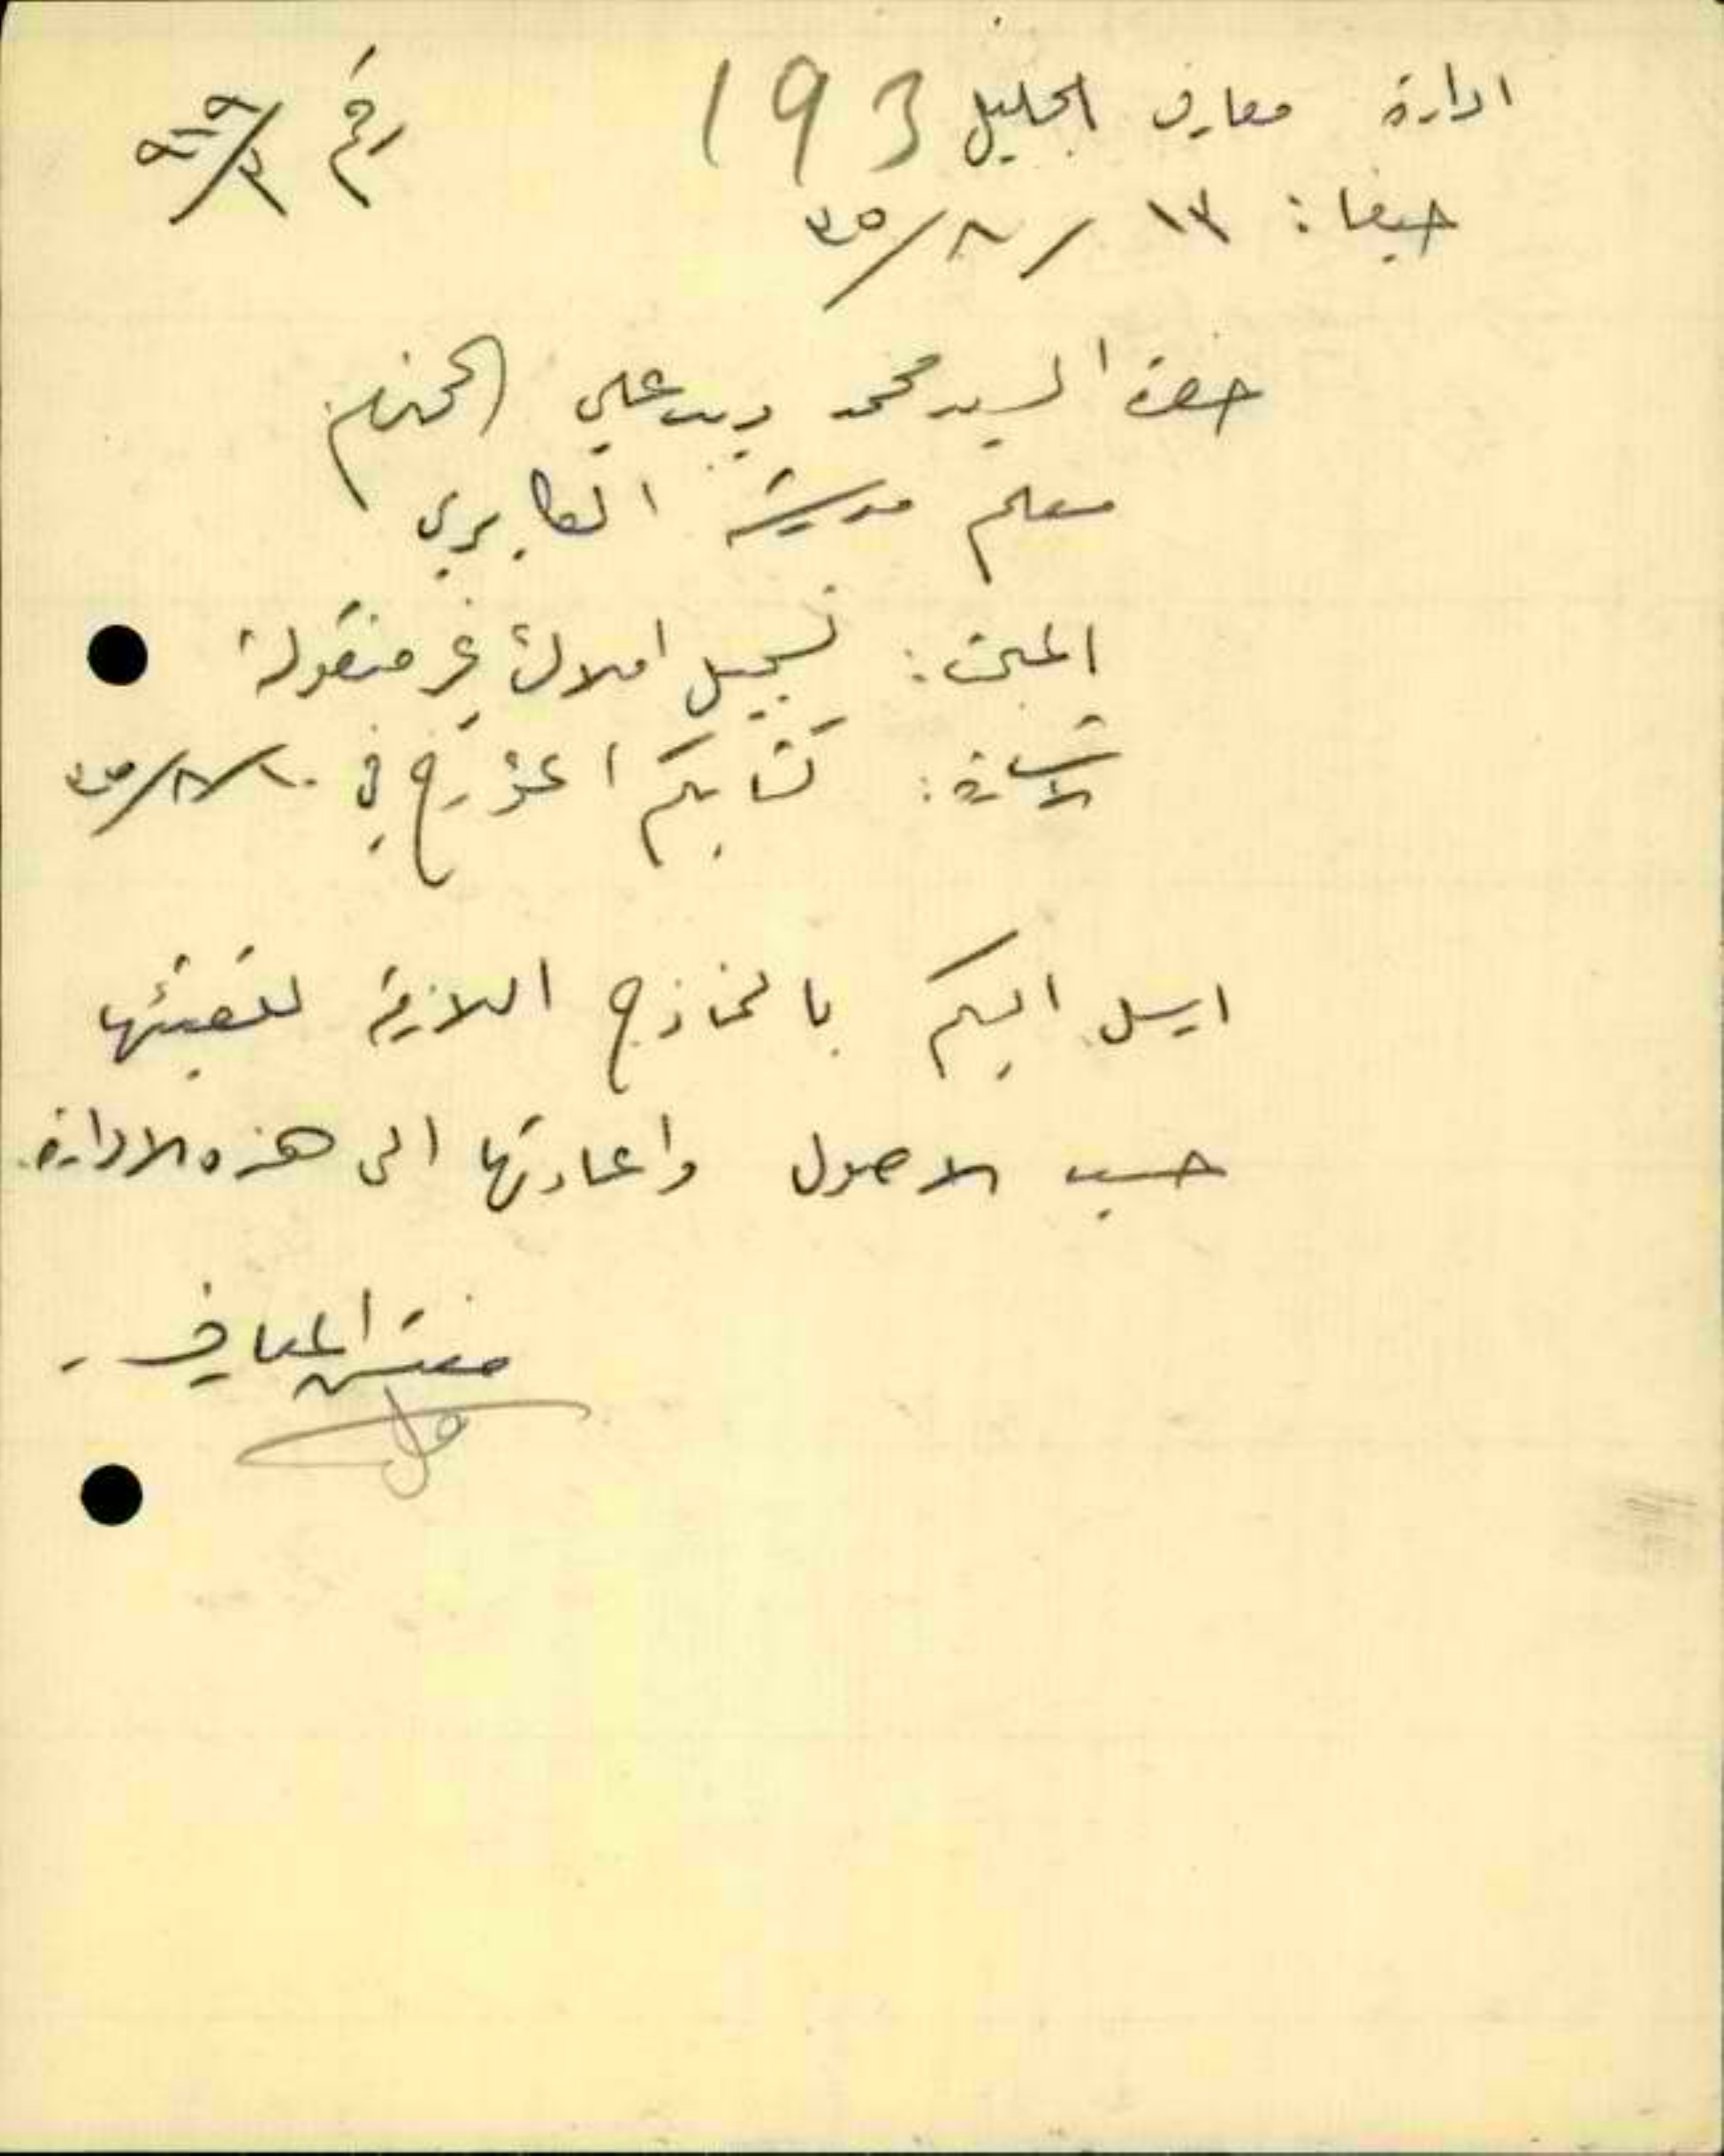 ادارة معارف الجليل 193
رقم
حيفا: ١٣ / ٨ / ٣٥
حضرة السيد محمد ديب علي المحترم
معلم مدرسة الكابري
المبحث: تسجيل املاك غير منقولة
الاشارة: كتابكم المؤرخ في ١٠/٨/٣٥
ارسل اليكم بالنماذج اللازمة لتعبئتها
حسب الاصول واعادتها الى هذه الادارة.
مفتش المعارف